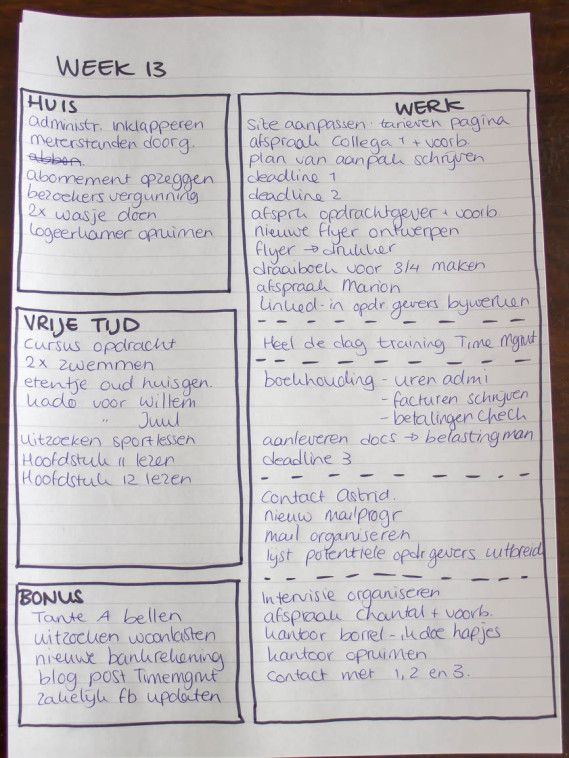 WEEK 13
HUIS
administr. inklapperen
meterstanden doorg.
abbon.
abonnement opzeggen
bezoekers vergunning
2x wasje doen
logeerkamer opruimen
VRIJE TIJD
cursus opdracht
2x zwemmen
etentje oud huisgen.
kado voor Willem
" Juul
uitzoeken sportlessen
Hoofdstuk 11 lezen
Hoofdstuk 12 lezen
BONUS
Tante A bellen
uitzoeken woonlasten
nieuwe bankrekening
blog post Timemgmt
zakelijk fb updaten
WERK
site aanpassen · tarieven pagina
afspraak collega 1 + voorb.
plan van aanpak schrijven
deadline 1
deadline 2
afsprk opdrachtgever + voorb
nieuwe flyer ontwerpen
flyer → drukker
draaiboek voor 3/4 maken
afspraak Marion
linked-in opdr.gevers bijwerken
Heel de dag training Time Mgmt
boekhouding - uren admi
- facturen schrijven
- betalingen check
aanleveren docs → belastingman
deadline 3
Contact Astrid.
nieuw mailprogr
mail organiseren
lijst potentiele opdr.gevers uitbreid
Intervisie organiseren
afspraak Chantal + voorb.
kantoor borrel - ik doe hapjes
kantoor opruimen
contact met 1, 2 en 3.